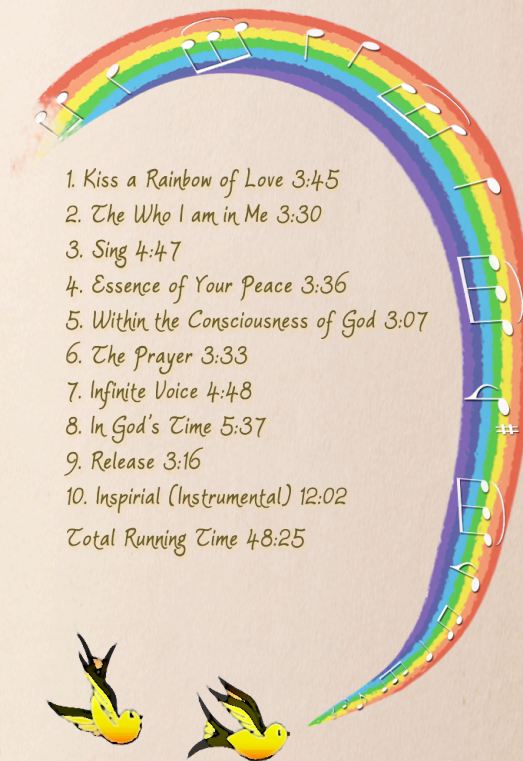 1. Kiss a Rainbow of Love 3:45
2. The Who I am in Me 3:30
3. Sing 4:47
4. Essence of Your Peace 3:36
5. Within the Consciousness of God 3:07
6. The Prayer 3:33
7. Infinite Voice 4:48
8. In God's Time 5:37
9. Release 3:16
10. Inspirial (Instrumental) 12:02
Total Running Time 48:25